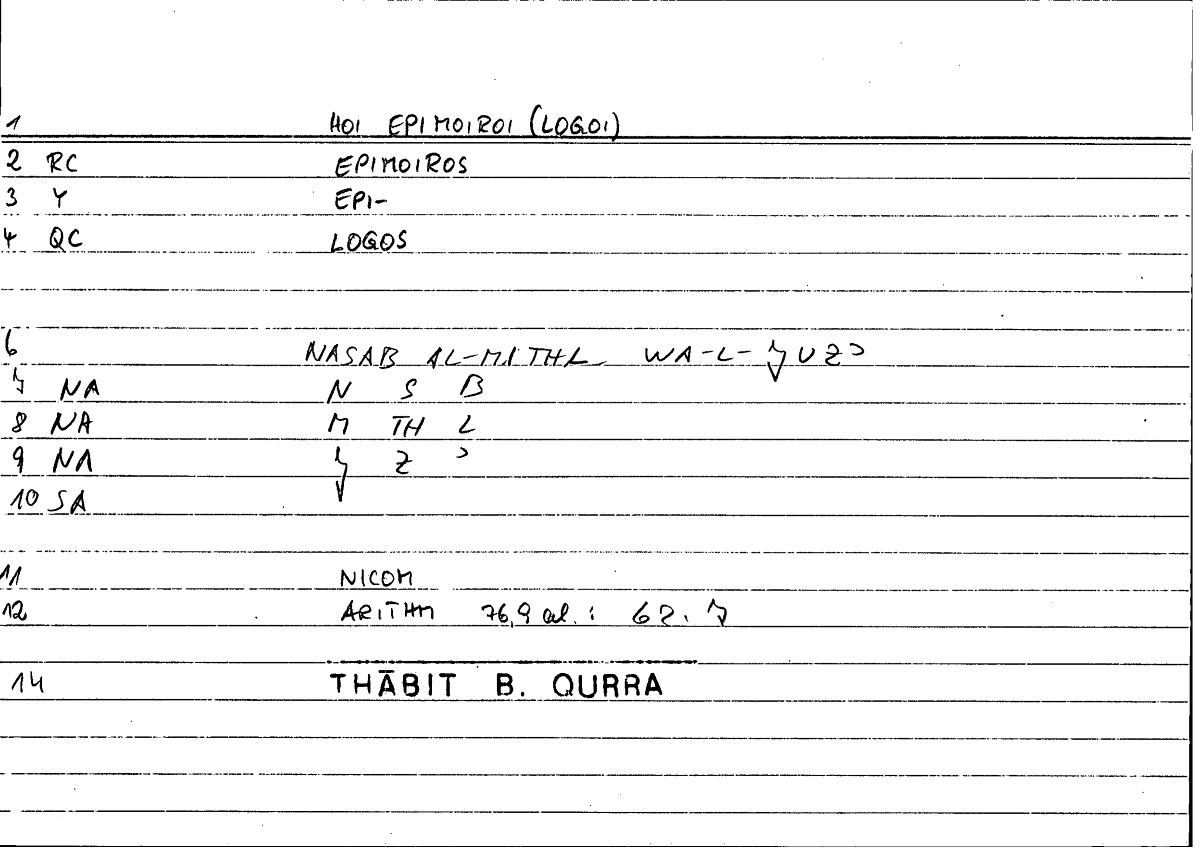 1 HOI EPIMOIROI (LOGOI)
2 RC EPIMOIROS
3 Y EPI-
4 QC LOGOS
6 NASAB AL-MITHL WA-L-J̌UZʾ
7 NA N S B
8 NA M TH L
9 NA J̌ Z ʾ
10 SA
11 NICOM
12 ARITHM 76,9 al. : 62. 7
14 THĀBIT B. QURRA